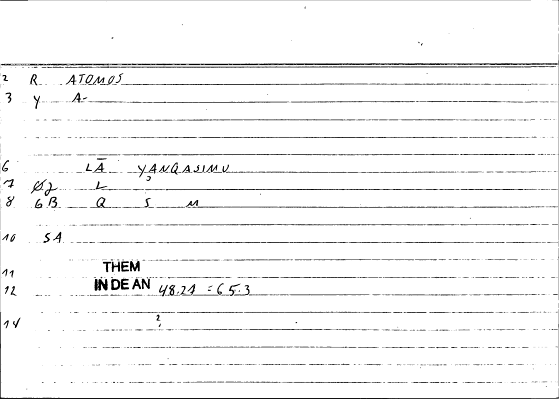 2 R ATOMOS
3 Y A-
6 LĀ YANQASIMU
7 L
8 6B Q S M
10 SA
11 THEM
12 IN DE AN 48.21 = 65.3
14 ?